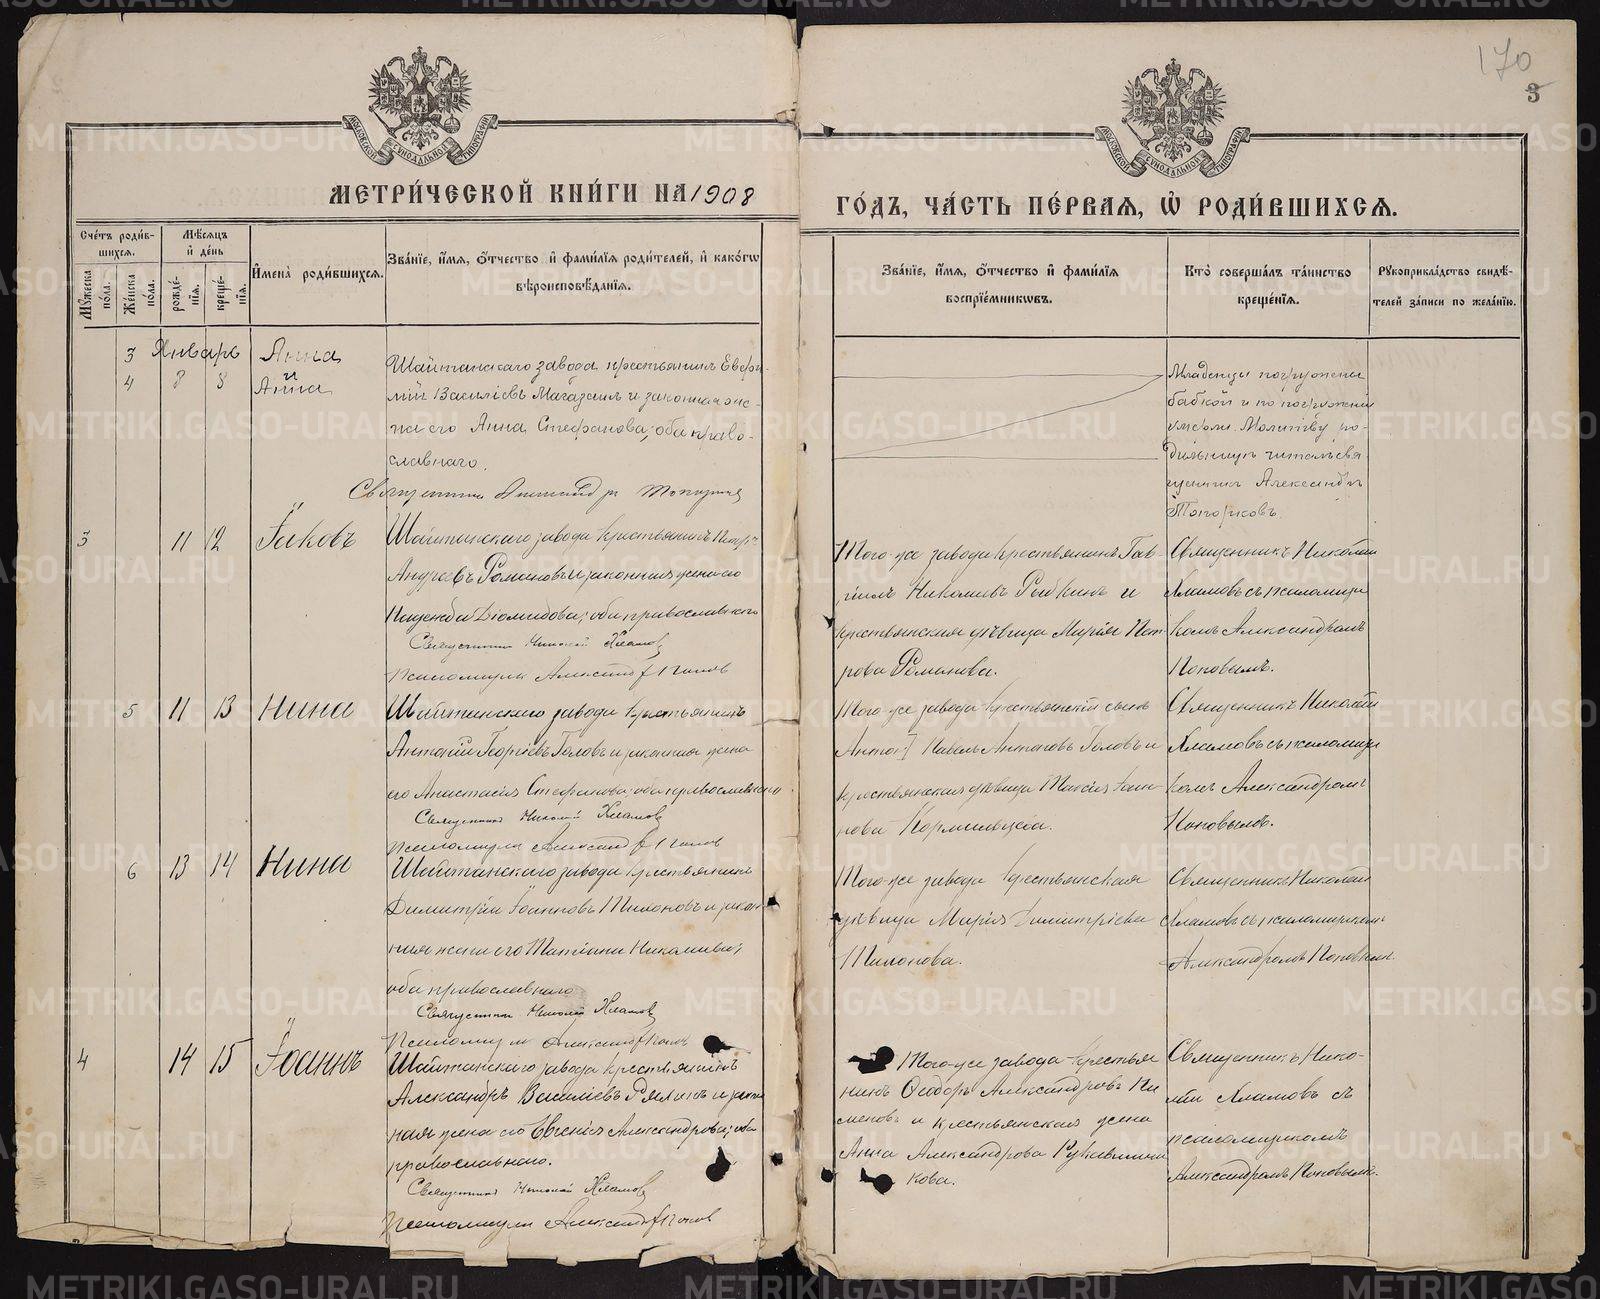 170
3
МОСКОВСКОЙ СѴНОДАЛЬНОЙ ТИПОГРАФІИ
МОСКОВСКОЙ СѴНОДАЛЬНОЙ ТИПОГРАФІИ
МЕТРИ́ЧЕСКОЙ КНИ́ГИ НА 1908
ГО́ДЪ, ЧА́СТЬ ПЕ́РВАЯ, Ѡ҆ РОДИ́ВШИХСЯ.
Сче́тъ роди́в-
шихся.
Мꙋ́жеска по́ла.
Же́нска по́ла.
Мѣ́сяцъ
и҆ де́нь
рожде́-
нїя.
креще́-
нїя.
И҆мена̀ роди́вшихся.
Зва́нїе, и҆́мя, ѻ҆́тчество и҆ фами́лїя роди́телей, и҆ како́гѡ
вѣроисповѣ́данїя.
Зва́нїе, и҆́мя, ѻ҆́тчество и҆ фами́лїя
воспрїе́мникѡвъ.
Кто̀ соверша́лъ та́инство
креще́нїя.
Рꙋкоприкла́дство свидѣ́-
телей за́писи по жела́нїю.
3 Январь Анна
4 8 8 и
Анна
Шайтанскаго завода крестьянинъ Евфи-
мій Василіевъ Магазеилъ и законная же-
на его Анна Стефанова; оба право-
славнаго.
Священникъ Александръ Топорковъ
Младенцы погружены
бабкой и по погруженіи
умерли. Молитву ро-
дильницѣ читалъ свя-
щенникъ Александръ
Топорковъ.
3 11 12 Іаковъ
Шайтанскаго завода крестьянинъ Петръ
Андреевъ Романовъ и законная жена его
Надежда Діомидова; оба православнаго
Священникъ Николай Хламовъ
Псаломщикъ Александръ Поповъ
Того-же завода крестьянинъ Гав-
ріилъ Николаевъ Рыбкинъ и
крестьянская дѣвица Марія Пет-
рова Романова.
Священникъ Николай
Хламовъ съ псаломщи-
комъ Александромъ
Поповымъ.
5 11 13 Нина
Шайтанскаго завода крестьянинъ
Антоній Георгіевъ Головъ и законная жена
его Анастасія Стефанова; оба православнаго
Священникъ Николай Хламовъ
Псаломщикъ Александръ Поповъ
Того же завода крестьянскій сынъ
Павелъ Антоновъ Головъ и
крестьянская дѣвица Таисія
нова Кормильцева.
Священникъ Николай
Хламовъ съ псаломщи-
комъ Александромъ
Поповымъ.
6 13 14 Нина
Шайтанскаго завода крестьянинъ
Димитрій Іоанновъ Тихоновъ и закон-
ная жена его Татіана Николаева;
оба православнаго
Священникъ Николай Хламовъ
Псаломщикъ Александръ Поповъ
Того-же завода крестьянская
дѣвица Марія Димитріева
Тихонова.
Священникъ Николай
Хламовъ съ псаломщикомъ
Александромъ Поповымъ.
4 14 15 Іоаннъ
Шайтанскаго завода крестьянинъ
Александръ Василіевъ и закон-
ная жена его Евгенія Александрова; оба
православнаго.
Священникъ Николай Хламовъ
Псаломщикъ Александръ Поповъ
Того-же завода крестья-
нинъ Ѳеодоръ Александровъ Пи-
меновъ и крестьянская жена
Анна Александрова Рукавишни-
кова.
Священникъ Нико-
лай Хламовъ съ
псаломщикомъ
Александромъ Поповымъ.
METRIKI.GASO-URAL.RU